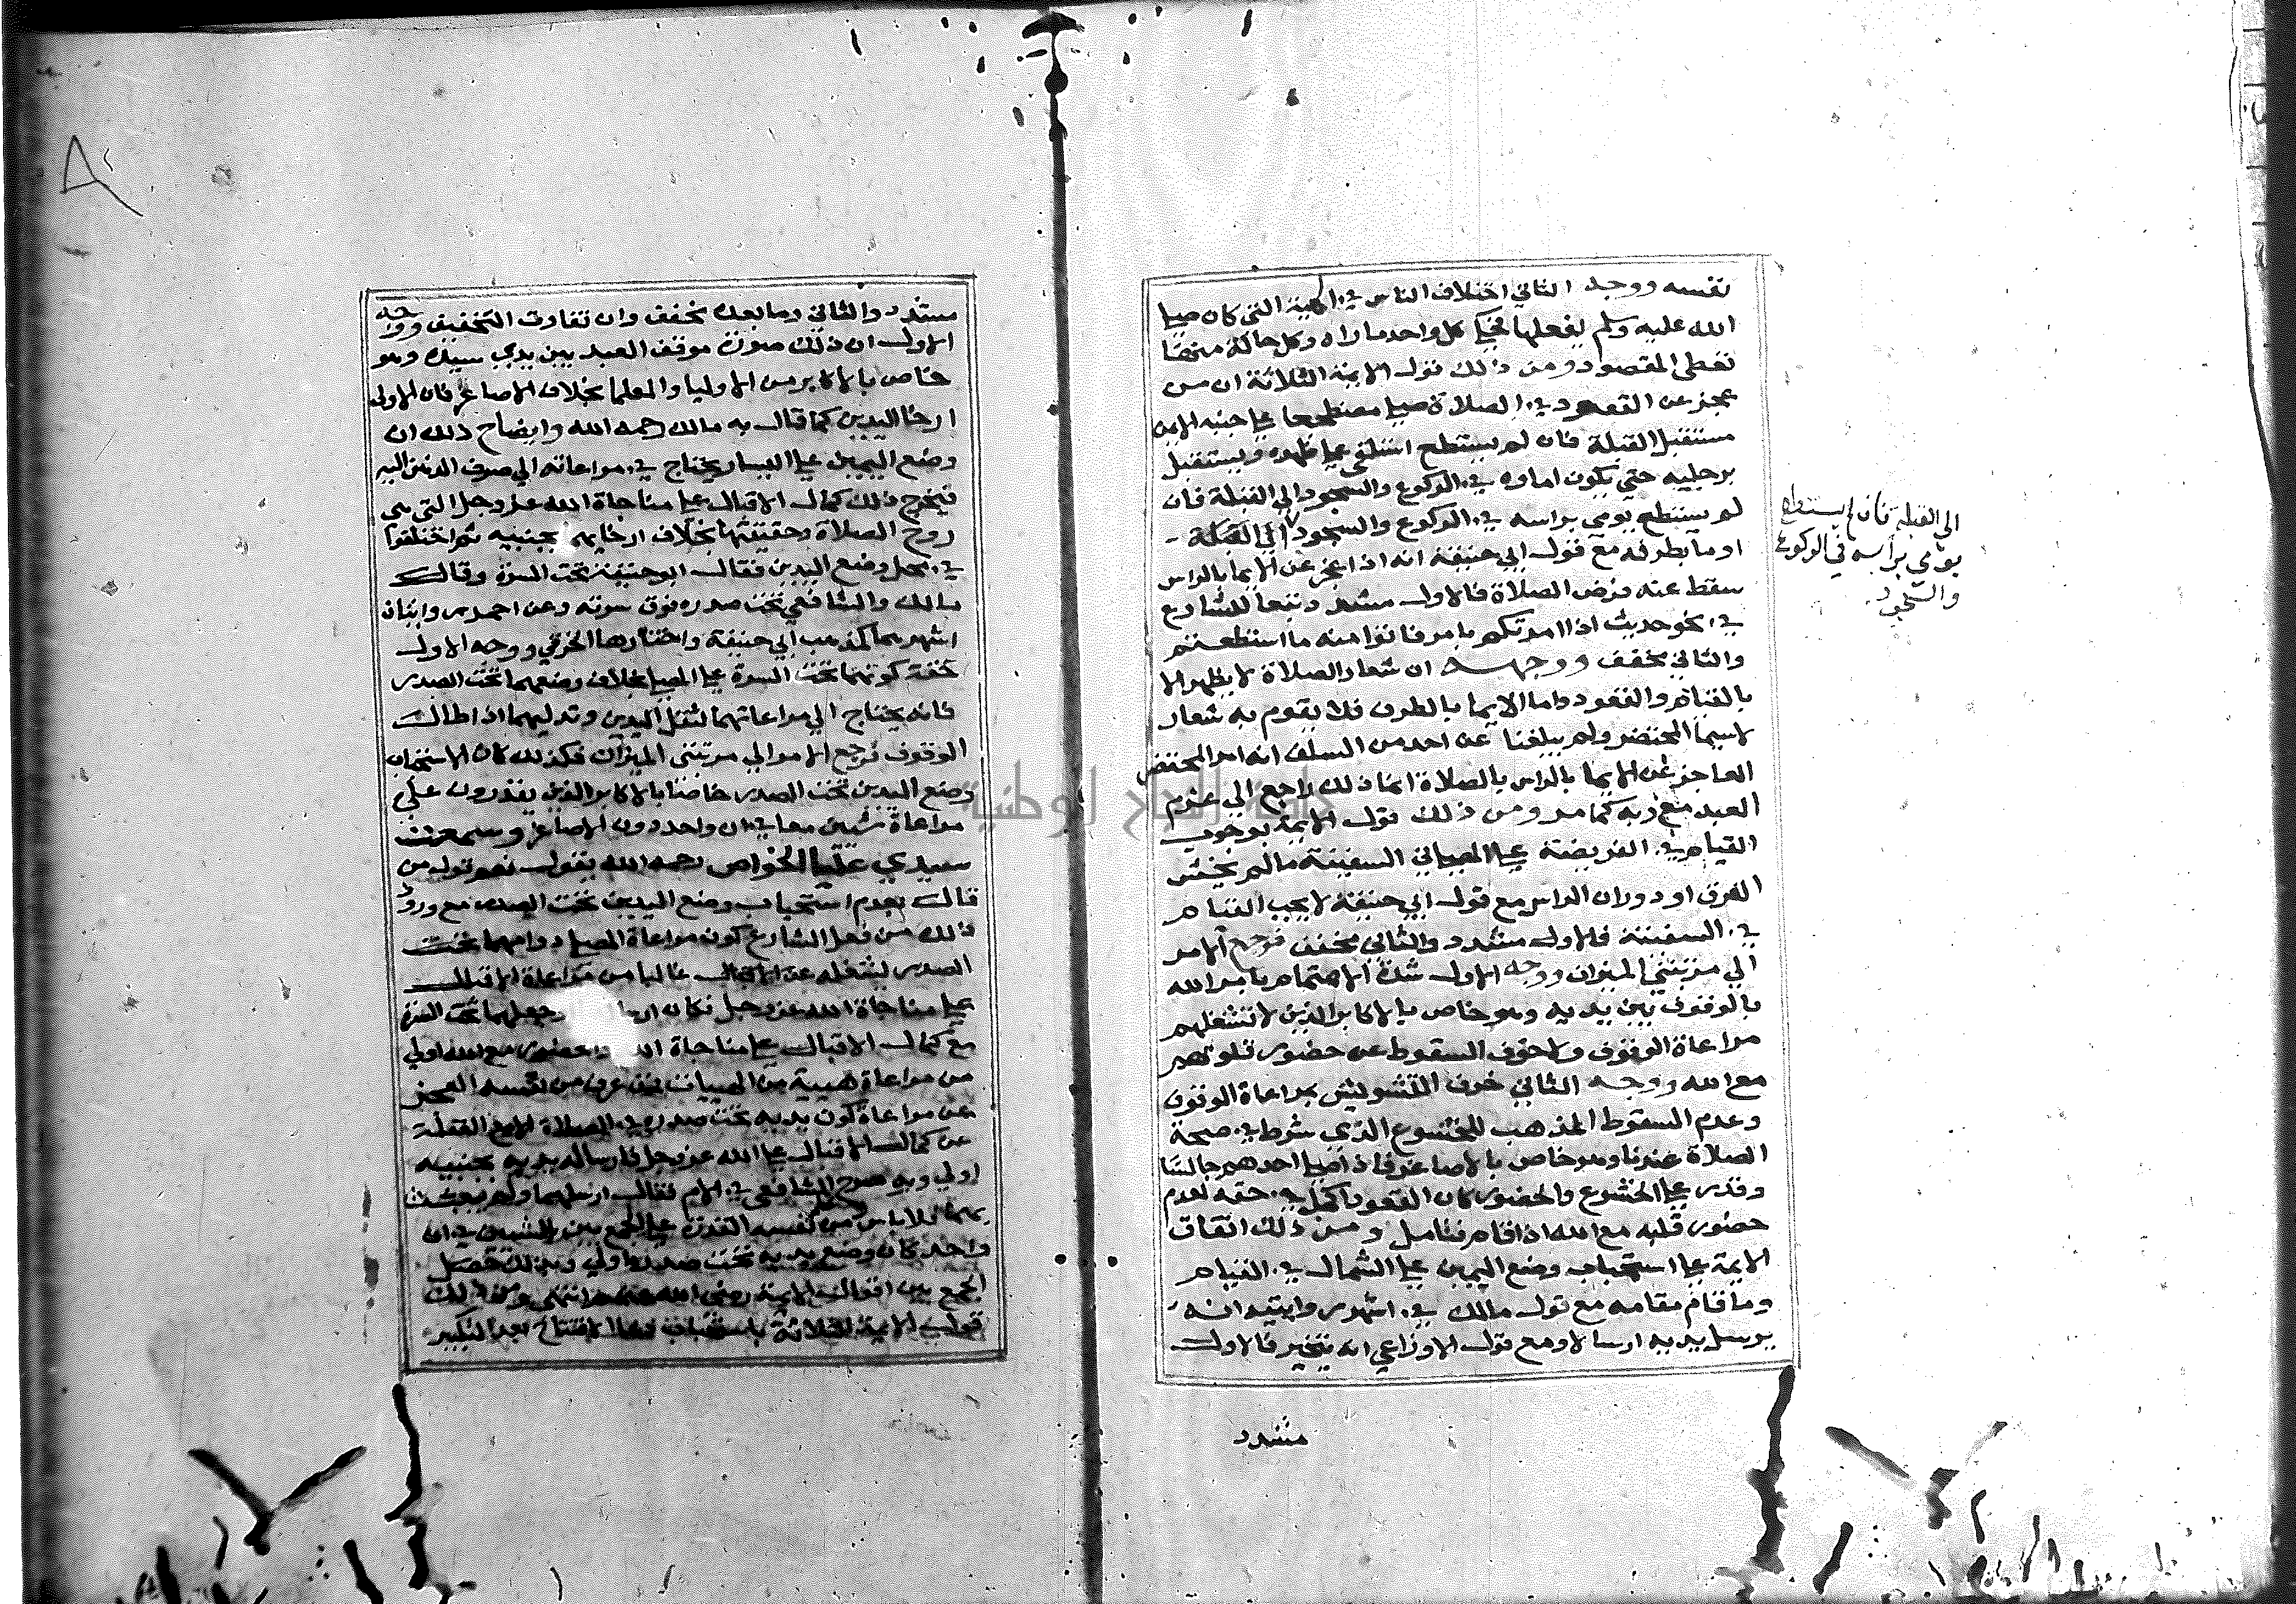 نفسه ووجه الثاني اختلاف الناس في الهيئة التي كان صلى
الله عليه وسلم يفعلها فحكى كل واحد ما راه وكل حالة منها
تعطى المقصود ومن ذلك قول الايمة الثلاثة ان من
عجز عن القعود في الصلاة صلى مضطجعا على جنبه الايمن
مستقبل القبلة فان لم يستطع استلقى على ظهره ويستقبل
برجليه حتى يكون اماوه في الركوع والسجود الى القبلة فان
لم يستطع يومي براسه في الركوع والسجود الى القبلة
اوما بطرفه مع قول ابي حنيفة انه اذا عجز عن الايما بالراس
سقط عنه فرض الصلاة فالاول مشدد وتبعا للشارع
في نحو حديث اذا امرتكم بامر فاتوا منه ما استطعتم
والثاني مخفف ووجهه ان شعار الصلاة لا يظهر الا
بالقيام والقعود واما الايما بالطرف فلا يقوم به شعار
لاسيما المحتضر ولم يبلغنا عن احد من السلف انه امر المحتضر
العاجز عن الايما بالراس بالصلاة انما ذلك راجع الى عزم
العبد مع ربه كما مر ومن ذلك قول الايمة بوجوب
القيام في الفريضة على المصلي في السفينة ما لم يخش
الغرق او دوران الراس مع قول ابي حنيفة لا يجب القيام
في السفينة فالاول مشدد والثاني مخفف فرجع الامر
الى مرتبتي الميزان ووجه الاول شدة الاهتمام بامر الله
بالوقوف بين يديه وهو خاص بالاكابر الذين لا تشغلهم
مراعاة الوقوف ولا خوف السقوط عن حضور قلوبهم
مع الله ووجه الثاني خوف التشويش بمراعاة الوقوف
وعدم السقوط المذهب للخشوع الذي شرط في صحة
الصلاة عندنا وهو خاص بالاصاغر فاذا صلى احدهم جالسا
وقدر على الخشوع والحضور كان القعود اكمل في حقه لعدم
حضور قلبه مع الله اذا قام فتامل ومن ذلك اتفاق
الايمة على استحباب وضع اليمين على الشمال في القيام
وما قام مقامه مع قول مالك في اشهر روايتيه انه
يرسل يديه ارسالا ومع قول الاوزاعي انه يتخير فالاول
مشدد
الى القبلة فان لم يستطع
يومي براسه في الركوع
والسجود
مشدد والثاني وما بعده مخفف وان تفاوت التخفيف ووجه
الاول ان ذلك صورة موقف العبد بين يدي سيده وهو
خاص بالاكابر من الاوليا والعلما بخلاف الاصاغر فان الاولى
ارخا اليدين كما قال به مالك رحمه الله وايضاح ذلك ان
وضع اليمين على اليسار يحتاج في مراعاته الى صرف الذهن اليه
فيخرج ذلك كمال الاقبال على مناجاة الله عز وجل التي هي
روح الصلاة وحقيقتها بخلاف ارخايهما بجنبيه ثم اختلفوا
في محل وضع اليدين فقال ابو حنيفة تحت السرة وقال
مالك والشافعي تحت صدره فوق سرته وعن احمد روايتان
اشهرهما كمذهب ابي حنيفة واختارها الخرقي ووجه الاول
خفة كونهما تحت السرة على المصلي بخلاف وضعهما تحت الصدر
فانه يحتاج الى مراعاتهما لثقل اليدين وتدليهما اذا طال
الوقوف فرجع الامر الى مرتبتي الميزان فكذلك كان الاستحباب
وضع اليدين تحت الصدر خاصا بالاكابر الذين يقدرون على
مراعاة شيين معا في ان واحد دون الاصاغر وسمعت
سيدي عليا الخواص رحمه الله يقول نعم قول من
قال بعدم استحباب وضع اليدين تحت الصدر مع ورود
ذلك من فعل الشارع كون مراعاة المصلي دوامهما تحت
الصدر ليشغله عن الاقبال غالبا من مراعاة الاقبال
على مناجاة الله عز وجل فكان وجعلهما تحت السرة
مع كمال الاقبال على مناجاة الله والحضور مع الله اولى
من مراعاة هيية من الهييات فمن عرف من نفسه العجز
عن مراعاة كون يديه تحت صدره في الصلاة الا مع الغفلة
عن كمال الاقبال على الله عز وجل فارسال يديه بجنبيه
اولى وبه صرح الشافعي في الام فقال ارسلهما ولم يعبث
بهما فلا باس من نفسه القدرة على الجمع بين الشيين في ان
واحد كان وضع يديه تحت صدره اولى وبذلك حصل
الجمع بين اقوال الايمة رضي الله عنهم انتهى ومن ذلك
قول الايمة الثلاثة باستحباب دعا الافتتاح بعد التكبير
جامعة النجاح الوطنية